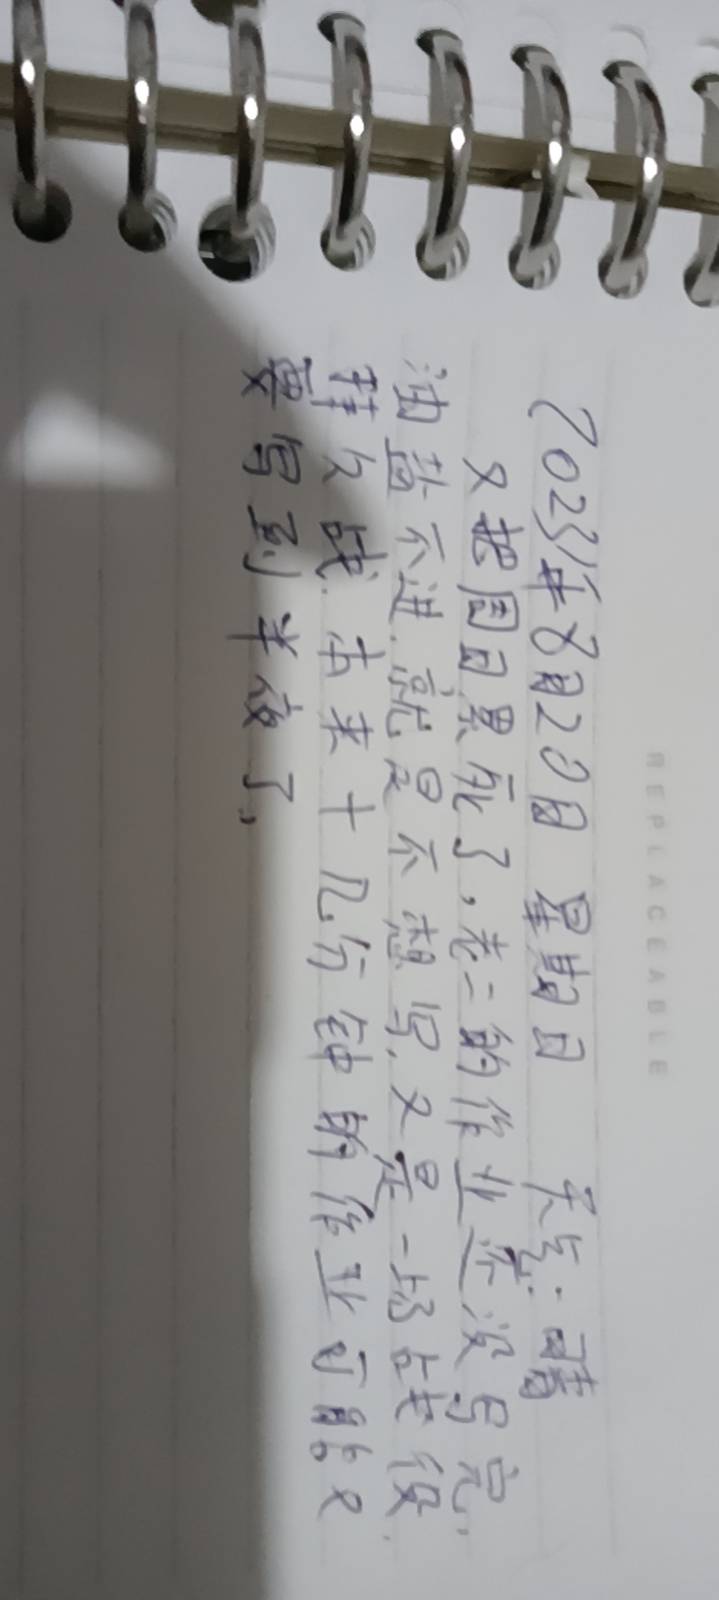 REPLACEABLE
2023年8月20日 星期日 天气:晴
又把周日累死了,老二的作业还没写完,
油盐不进.就是不想写.又是一场战役.
持久战.本来十几分钟的作业可能又
要写到半夜了,